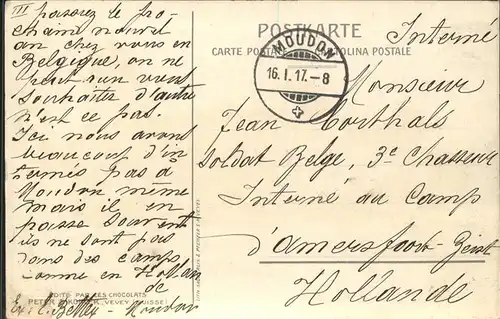 III passiez le pro-
chain nouvel
an chez vous en
Belgique, on ne
peut rien vous
souhaiter d'autre
n'est ce pas.
Ici nous avons
beaucoup d'in-
ternés pas à
Moudon même
mais il en
passe souvent
ils ne sont pas
dans des camps
comme en Hollan
de
POSTKARTE
CARTE POSTALE CARTOLINA POSTALE
MOUDON
16. I. 17. – 8
Interné
Monsieur
Jean
Soldat Belge, 3e Chasseur
Interné au Camp
d'Amersfoort-Zeist
Hollande
EDITÉ PAR LES CHOCOLATS
PETER, VEVEY (SUISSE)
Moudon